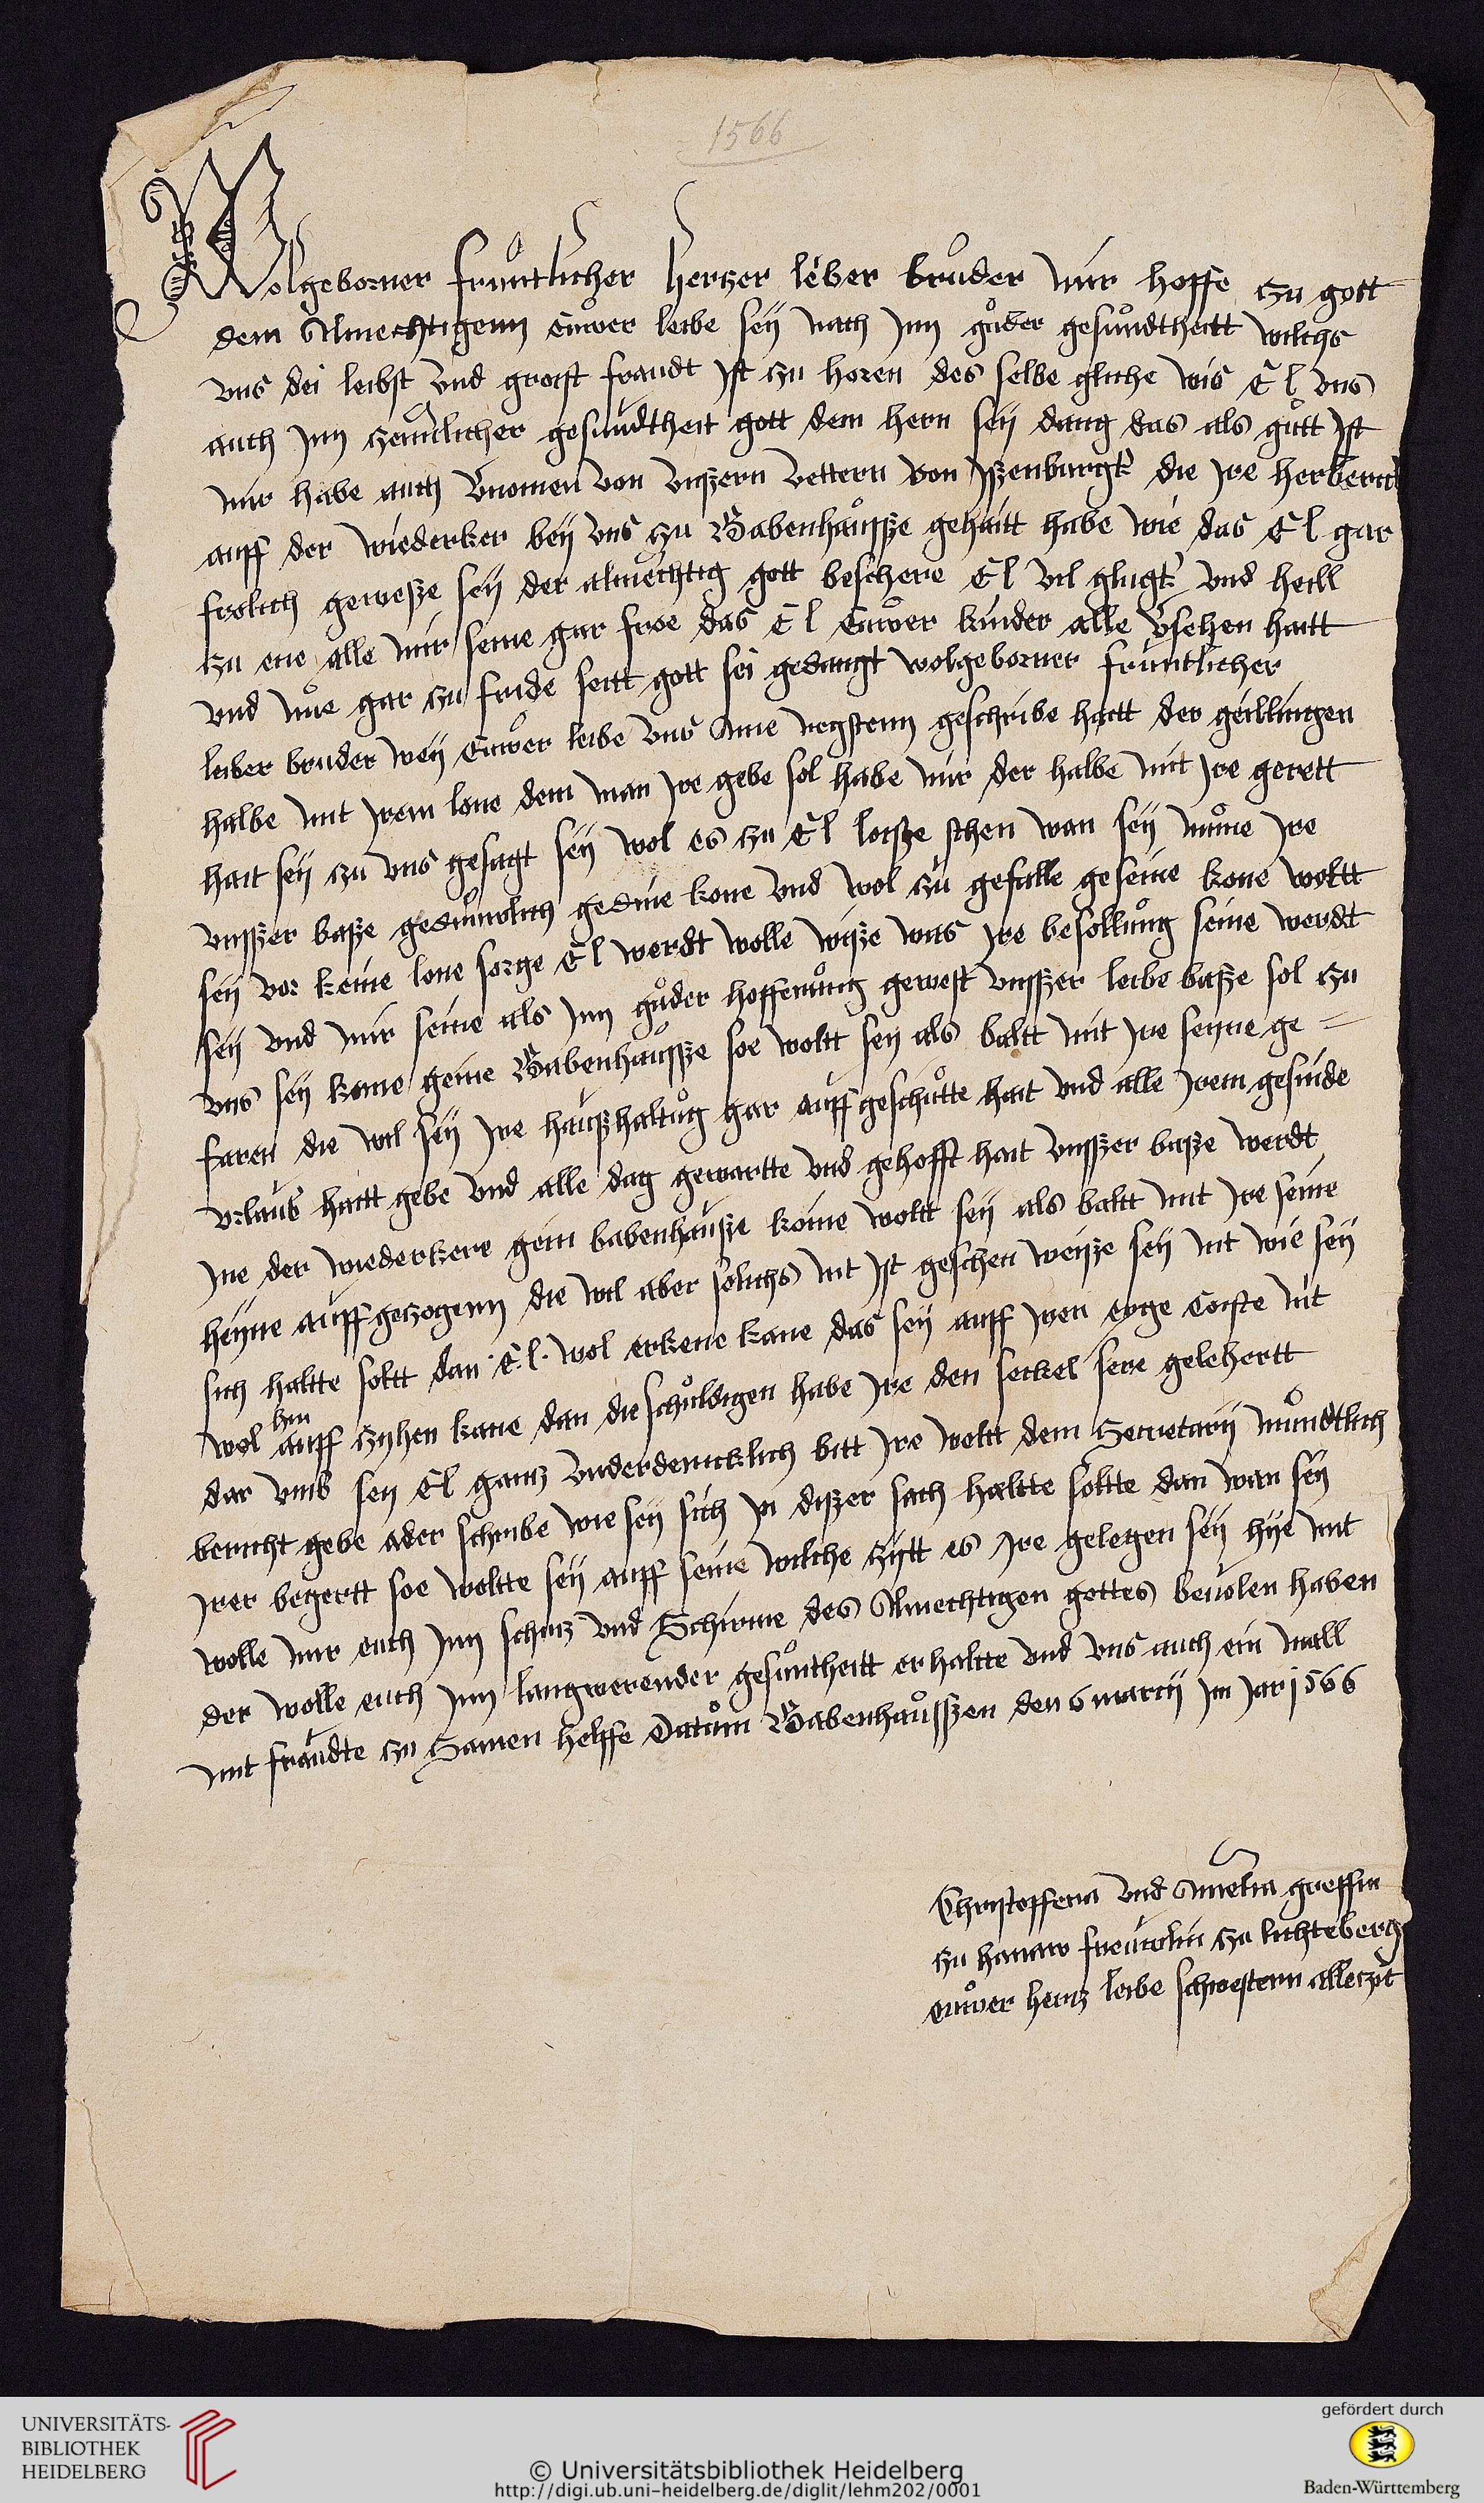 1566
Wolgeborner fruntlicher hertzer leber bruder mir hoffe zu gott
dem Almechtigenn Euwer leibe sey nach Inn guder gesundtheitt wilchs
vns dei leibst vnd groist fraudt Ist zu horen des selbe gliche wis E l vns
auch Inn zeimlicher gesundtheit gott dem hern sey dang das als gutt Ist
mir habe auch von vnszern vettern von Iszenburgk die Ire herberg
auff der wiederker bey vns zu Babenhausze gehaitt habe wie das E l gar
frolich gewesze sey der almechtig gott beschere E l vil glugk vnd heill
zu ene alle mir seine gar froe das E l Euwer kinder alle vsehen haitt
vnd nue gar zu fride seitt gott sei gedangt wolgeborner fruntlicher
leiber bruder wey Euwer leibe vns Ame negstenn geschribe haitt der geillingen
halbe mit Irem lone dem man Ire gebe sol habe mir der halbe mit Ire gerett
hait sey zu vns gesagt sey wol es zu E l loisze sthen wan sey nuone Ire
vnszer basze gedine kone vnd wol zu gefalle geseine kone woltt
sey vor keine lone sorge E l werdt wolle wisze was Ire besollung seine werdt
sey vnd mir seine als Inn guder hoffenung gewest vnszer leibe basze sol zu
vns sey kome geine Babenhausze soe woltt sey als baltt mit Ire seyne ge=
faren die wil sey Ire hauszhaltug gar auff geschutte hait vnd alle Irem gesinde
vrlaub haitt gebe vnd alle dag gewartte vnd gehofft hait vnszer basze werdt
Ine der wiederkere gein babenhausze kome woltt sey als baltt mit Ire seine
heyne auff gezogenn die wil aber solichs nit Ist geschen weisze sey nit wie sey
sich haltte soltt dan E. l. wol erkene kane das sey auff Iren eyge Coiste nit
hin
wol auff zyhen kane dan die schuldigen habe Ire den seckel sere gelehertt
dar vmb sey E l gantz vnderdenicklich bitt Ire woltt dem Secretary mundtlich
bericht gebe ader schribe wie sey sich In diszer sach haltte soltte dan wan sey
Irer begertt soe woltte sey auff seine wilche zytt es Ire gelegen sey hye mit
wolle mir euch Inn schutz vnd Schirme des Almechtigen gottes beuolen haben
der wolle euch Inn langwerender gesuntheitt erhaltte vnd vns auch ein mall
mit fraudte zu Samen helffe Datum Babenhausszen den 6 marcij Im Jar 1566
Christoffera vnd Amelia greffin
zu hanaw freuwlin zu lichteberg
euwer hertz leibe schwestern alleczit
UNIVERSITÄTS-
BIBLIOTHEK
HEIDELBERG
© Universitätsbibliothek Heidelberg
http://digi.ub.uni-heidelberg.de/diglit/lehm202/0001
gefördert durch
Baden-Württemberg